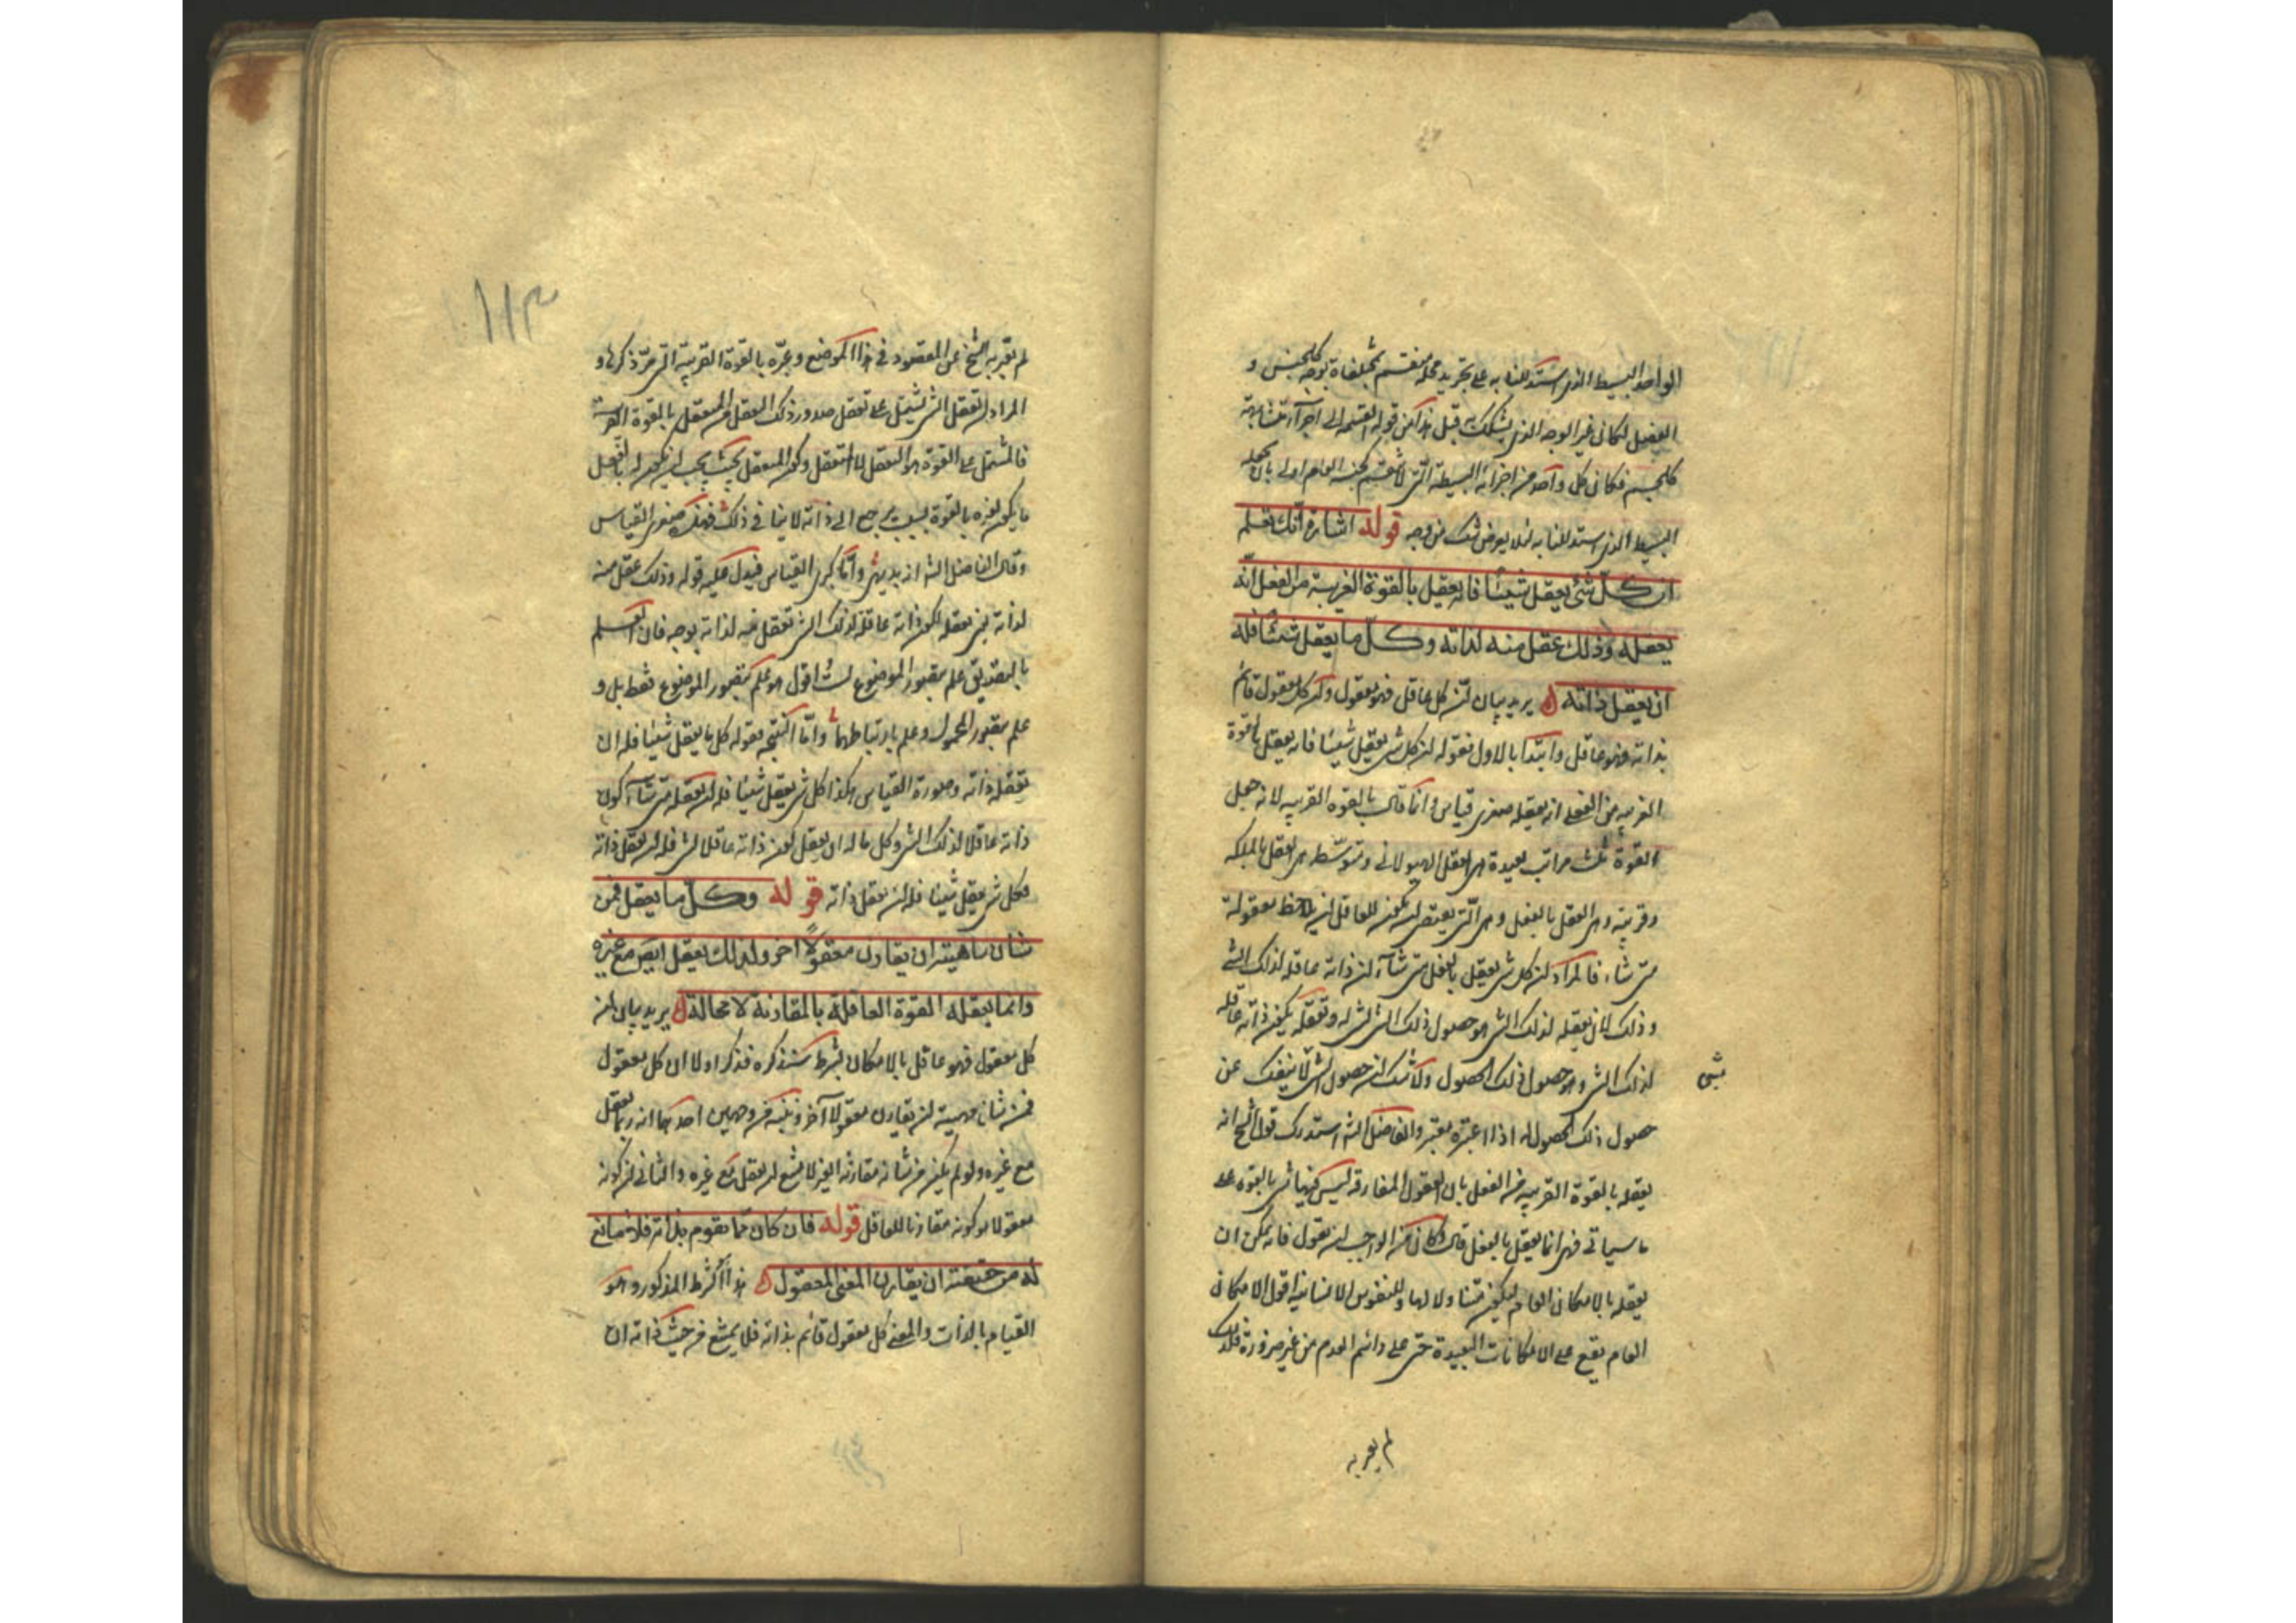 الواحد البسيط الذى استدللنا به على تجريد محله منقسم بمختلفات بوجه كالجنس و
الفصل لكان غير الوجه الذى يشكك به قبل هذا من قوله القسمة الى اجزآء متشابهة
كالجنس فكان كل واحد من اجزائه البسيطة التى لا تنقسم كجنسه العام اولى بان يجعله
البسيط الذى استدللنا به لئلا يعرض شك من وجه قوله اشارة انك تعلم
ان كل شئ يعقل شيئا فانه يعقل بالقوة القريبة من الفعل انه
يعقله وذلك عقل منه لذاته وكل ما يعقل شيئا فله
ان يعقل ذاته يريد بيان ان كل عاقل فهو معقول وان كل معقول قائم
بذاته فهو عاقل وابتدأ بالاول فقوله ان كل شئ يعقل شيئا فانه يعقل بالقوة
القريبة من الفعل انه يعقله صغرى قياس وانما قال بالقوة القريبة لانه جعل
القوة ثلث مراتب بعيدة هى العقل الهيولانى ومتوسطة هى العقل بالملكة
وقريبة وهى العقل بالفعل وهى التى يقتضى ان يكون للعاقل ان يلاحظ معقولة
متى شاء فالمراد ان كل شئ يعقل بالفعل متى شآء ان ذاته عاقلة لذلك الشئ
وذلك لان تعقله لذلك الشئ هو حصول ذلك الشئ له وتعقله بكون ذاته عاقلة
لذلك الشئ هو حصول ذلك الحصول ولا شك ان حصول الشئ لا ينفك عن
شئ
حصول ذلك الحصول له اذا اعتبره معتبر والفاضل الشه استدرك قول الشيخ انه
يعقله بالقوة القريبة من الفعل بان العقول المفارقة ليس فيها شئ بالقوة على
ما سياتى فهى انما يعقل بالفعل قال وكان من الواجب ان يقول فانه يمكن ان
يعقله بالامكان العام ليكون متناولا لها وللنفوس الانسانية اقول الامكان
العام يقع على الامكانات البعيدة حتى على دائم العدم من غير ضرورة فلذلك
لم يعبر به
١١٣
لم يعبر به الشيخ عن المقصود فى هذا الموضع وعبره بالقوة القريبة التى مر ذكرها و
المراد ان تعقل الشئ يشتمل على تعقل صدور ذلك التعقل من المتعقل بالقوة القريبة
فالمشتمل على القوة هو التعقل لا المتعقل وكون المتعقل بحيث يجب ان يكون له بالفعل
ما يكون لغيره بالقوة بسبب يرجع الى ذاته لا ينافى ذلك فهذه صغرى القياس
وقال الفاضل الشه انه بديهى وانما كبرى القياس فيدل عليه قوله وذلك عقل منه
لذاته يعنى تعقله لكون ذاته عاقلة لذلك الشئ تعقل منه لذاته بوجه فان العلم
بالتصديق علم بتصور الموضوع لست اقول هو علم بتصور الموضوع فقط بل و
علم بتصور المحمول وعلم بارتباطهما وانما النتيجة فقوله كل ما يعقل شيئا فله ان
يعقل ذاته وصورة القياس هكذا كل شئ يعقل شيئا فله ان يعقل متى شآء كون
ذاته عاقلا لذلك الشئ وكل ما له ان يعقل كون ذاته عاقلا لشئ فله ان يعقل ذاته
فكل شئ يعقل شيئا فله ان يعقل ذاته قوله وكل ما يعقل فمن
شان ماهيته ان يقارن معقولا آخر ولذلك يعقل ايضا مع غيره
وانما يعقله القوة العاقلة بالمقارنة لا محالة يريد بيان ان
كل معقول فهو عاقل بالامكان بشرط سنذكره فذكر اولا ان كل معقول
فمن شان مهيته ان يقارن معقولا آخر وبينه من وجهين احدهما انه ربما يعقل
مع غيره ولو لم يكن من شانه مقارنة الغير لامتنع ان يعقل مع غيره والثانى ان كونه
معقولا هو كونه مقارنا للعاقل قوله فان كان مما يقوم بذاته فلا مانع
له من حقيقته ان يقارن المعنى المعقول هذا الشرط المذكور وهو
القيام بالذات والمعنى كل معقول قائم بذاته فلا يمتنع من حيث ذاته ان